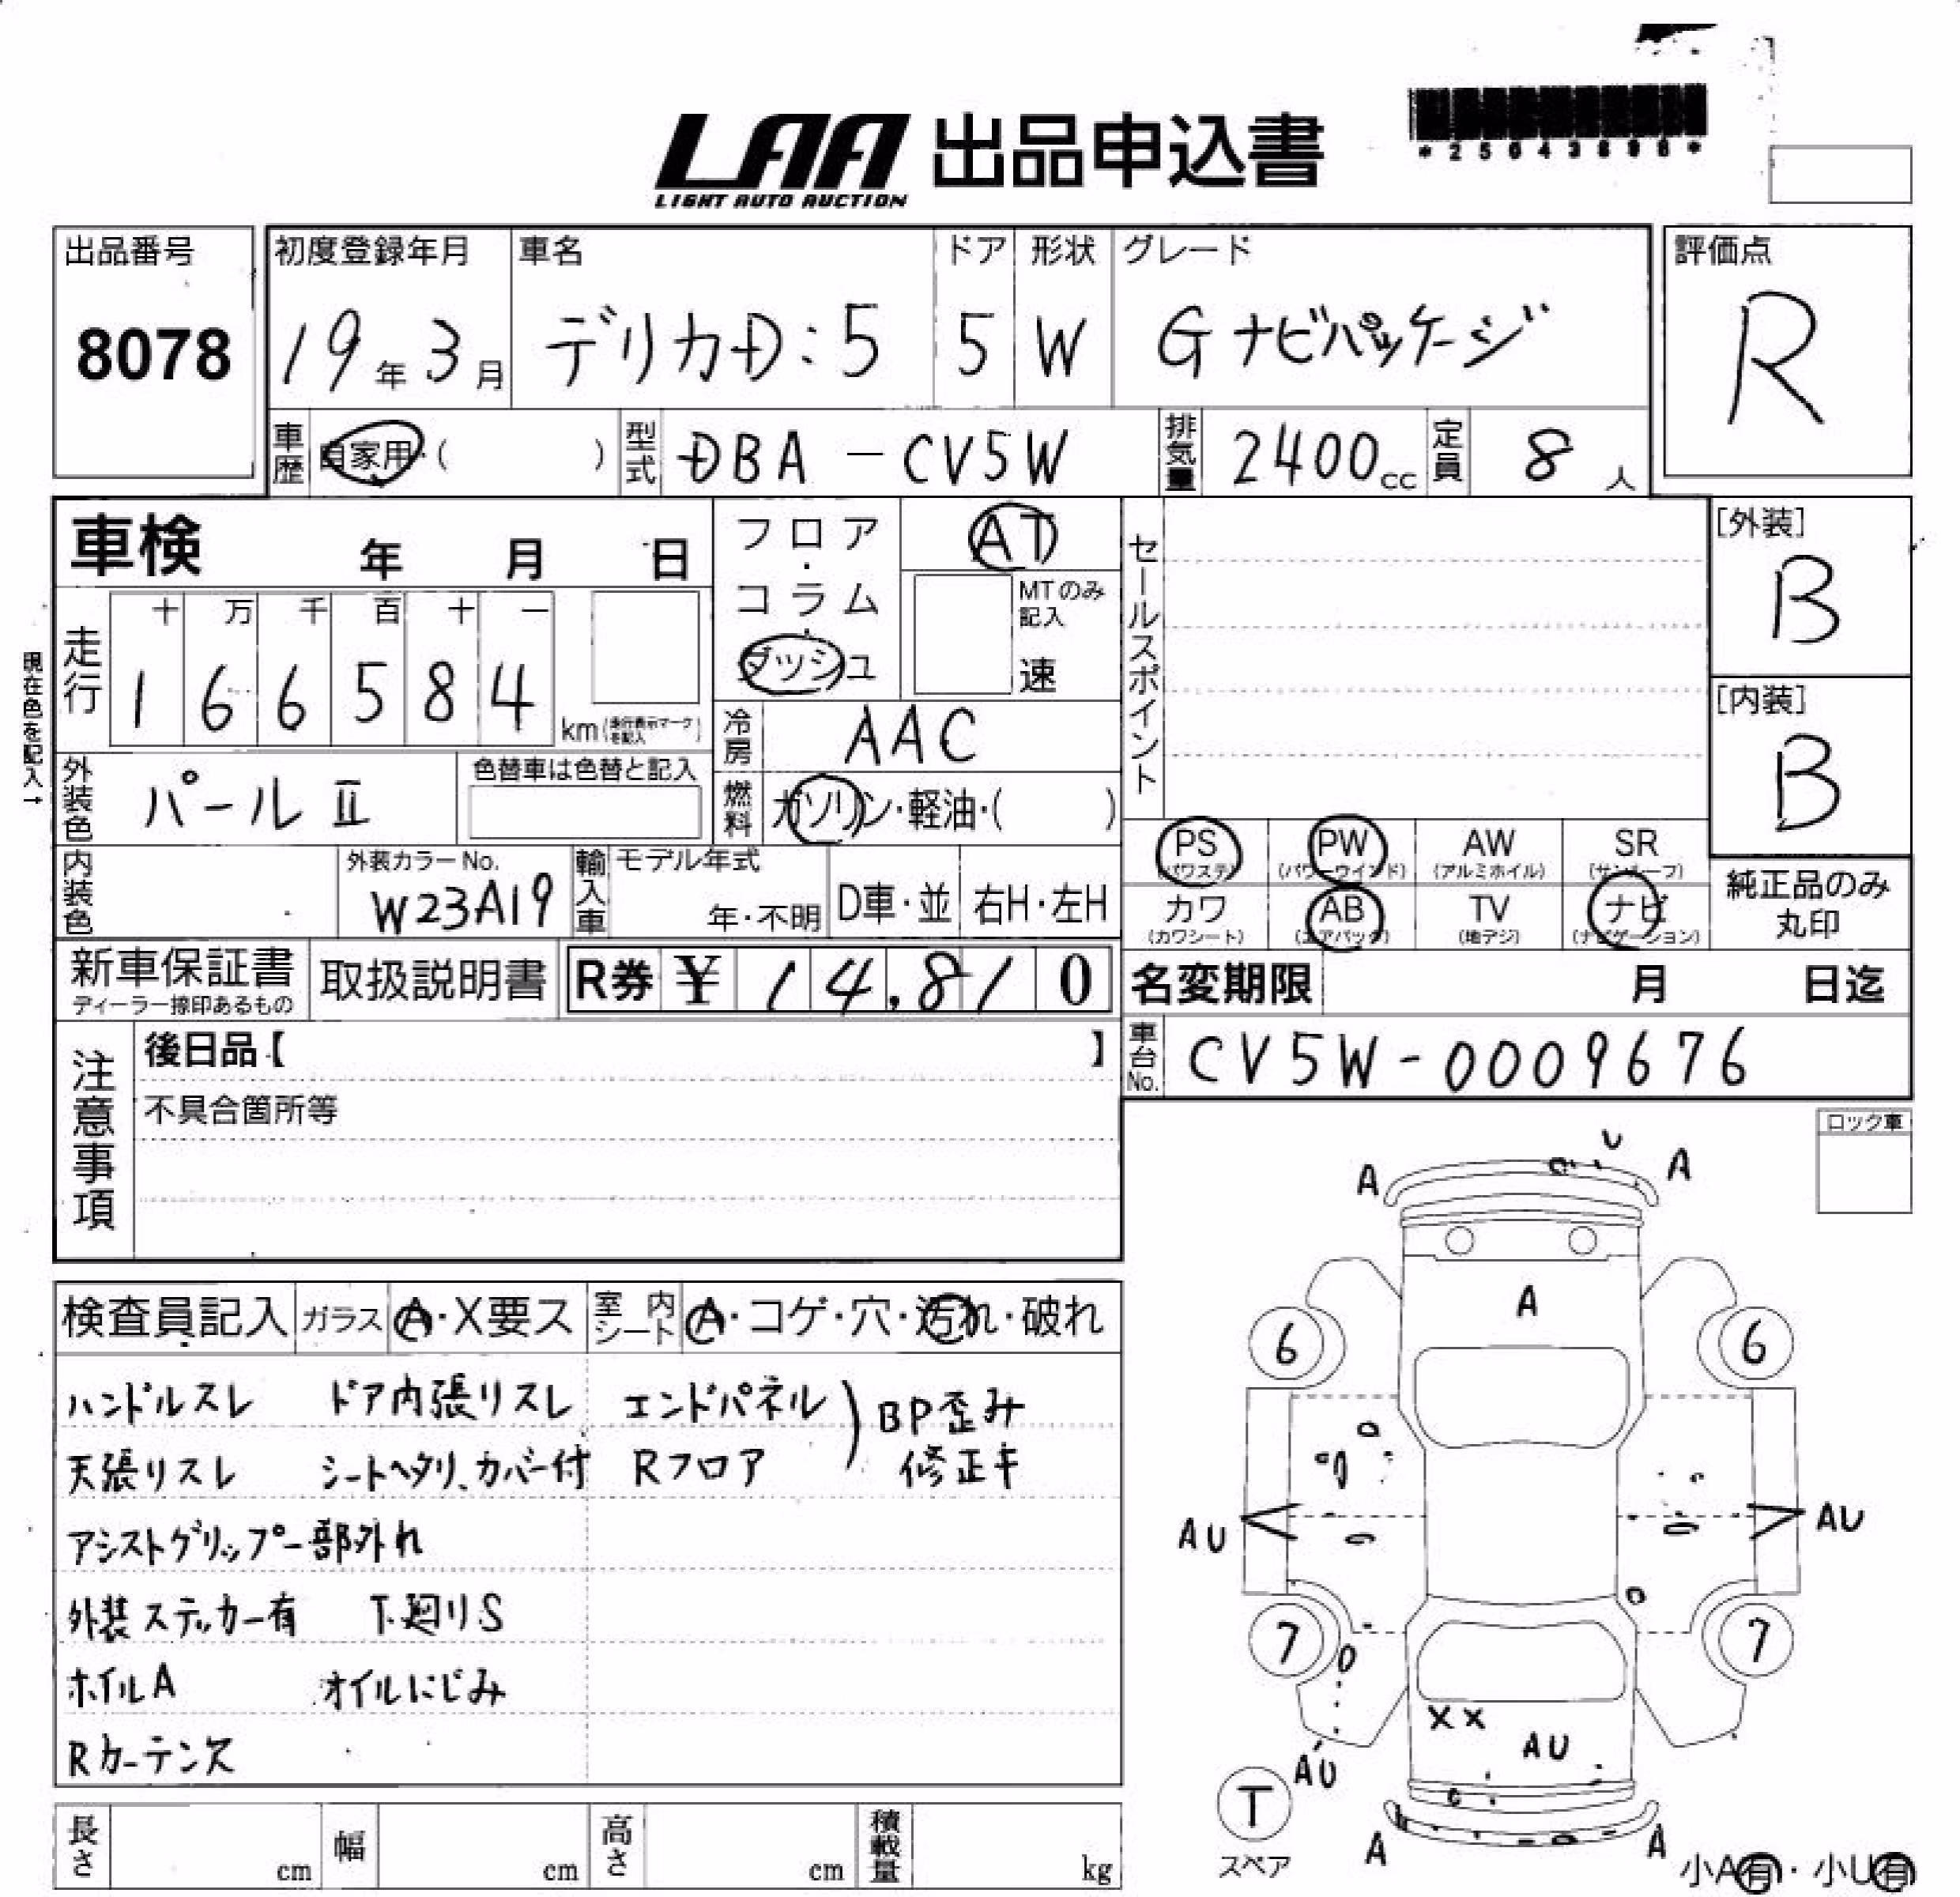 LAA 出品申込書
LIGHT AUTO AUCTION
出品番号
8078
初度登録年月
19年3月
車名
デリカD:5
ドア
5
形状
W
グレード
Gナビパッケージ
評価点
R
車歴
自家用・( )
型式
DBA-CV5W
排気量
2400cc
定員
8人
車検 年 月 日
フロア・コラム・ダッシュ
AT
MTのみ記入
速
セールスポイント
[外装]
B
[内装]
B
現在色を記入→
走行
十 万 千 百 十 一
1 6 6 5 8 4
km(走行表示マークを記入)
冷房
AAC
外装色
パールⅡ
色替車は色替と記入
燃料
ガソリン・軽油・( )
内装色
外装カラーNo.
W23A19
輸入車
モデル年式
年・不明
D車・並
右H・左H
PS
(パワステ)
PW
(パワーウインド)
AW
(アルミホイル)
SR
(サンルーフ)
カワ
(カワシート)
AB
(エアバック)
TV
(地デジ)
ナビ
(ナビゲーション)
純正品のみ
丸印
新車保証書
ディーラー捺印あるもの
取扱説明書
R券 ¥ 14,810
名変期限 月 日迄
車台No.
CV5W-0009676
注意事項
後日品【 】
不具合箇所等
ロック車
検査員記入
ガラス
A・X要ス
室内シート
A・コゲ・穴・汚れ・破れ
ハンドルスレ ドア内張リスレ エンドパネル
BP歪み
天張リスレ シートヘタリ、カバー付 Rフロア
修正キ
アシストグリップ一部外れ
外装ステッカー有 下廻りS
ホイルA オイルにじみ
Rカーテン欠
U
A A
A
6 6
AU AU
7 7
XX
AU
AU
T
スペア
A A
小A有・小U有
長さ cm
幅 cm
高さ cm
積載量 kg